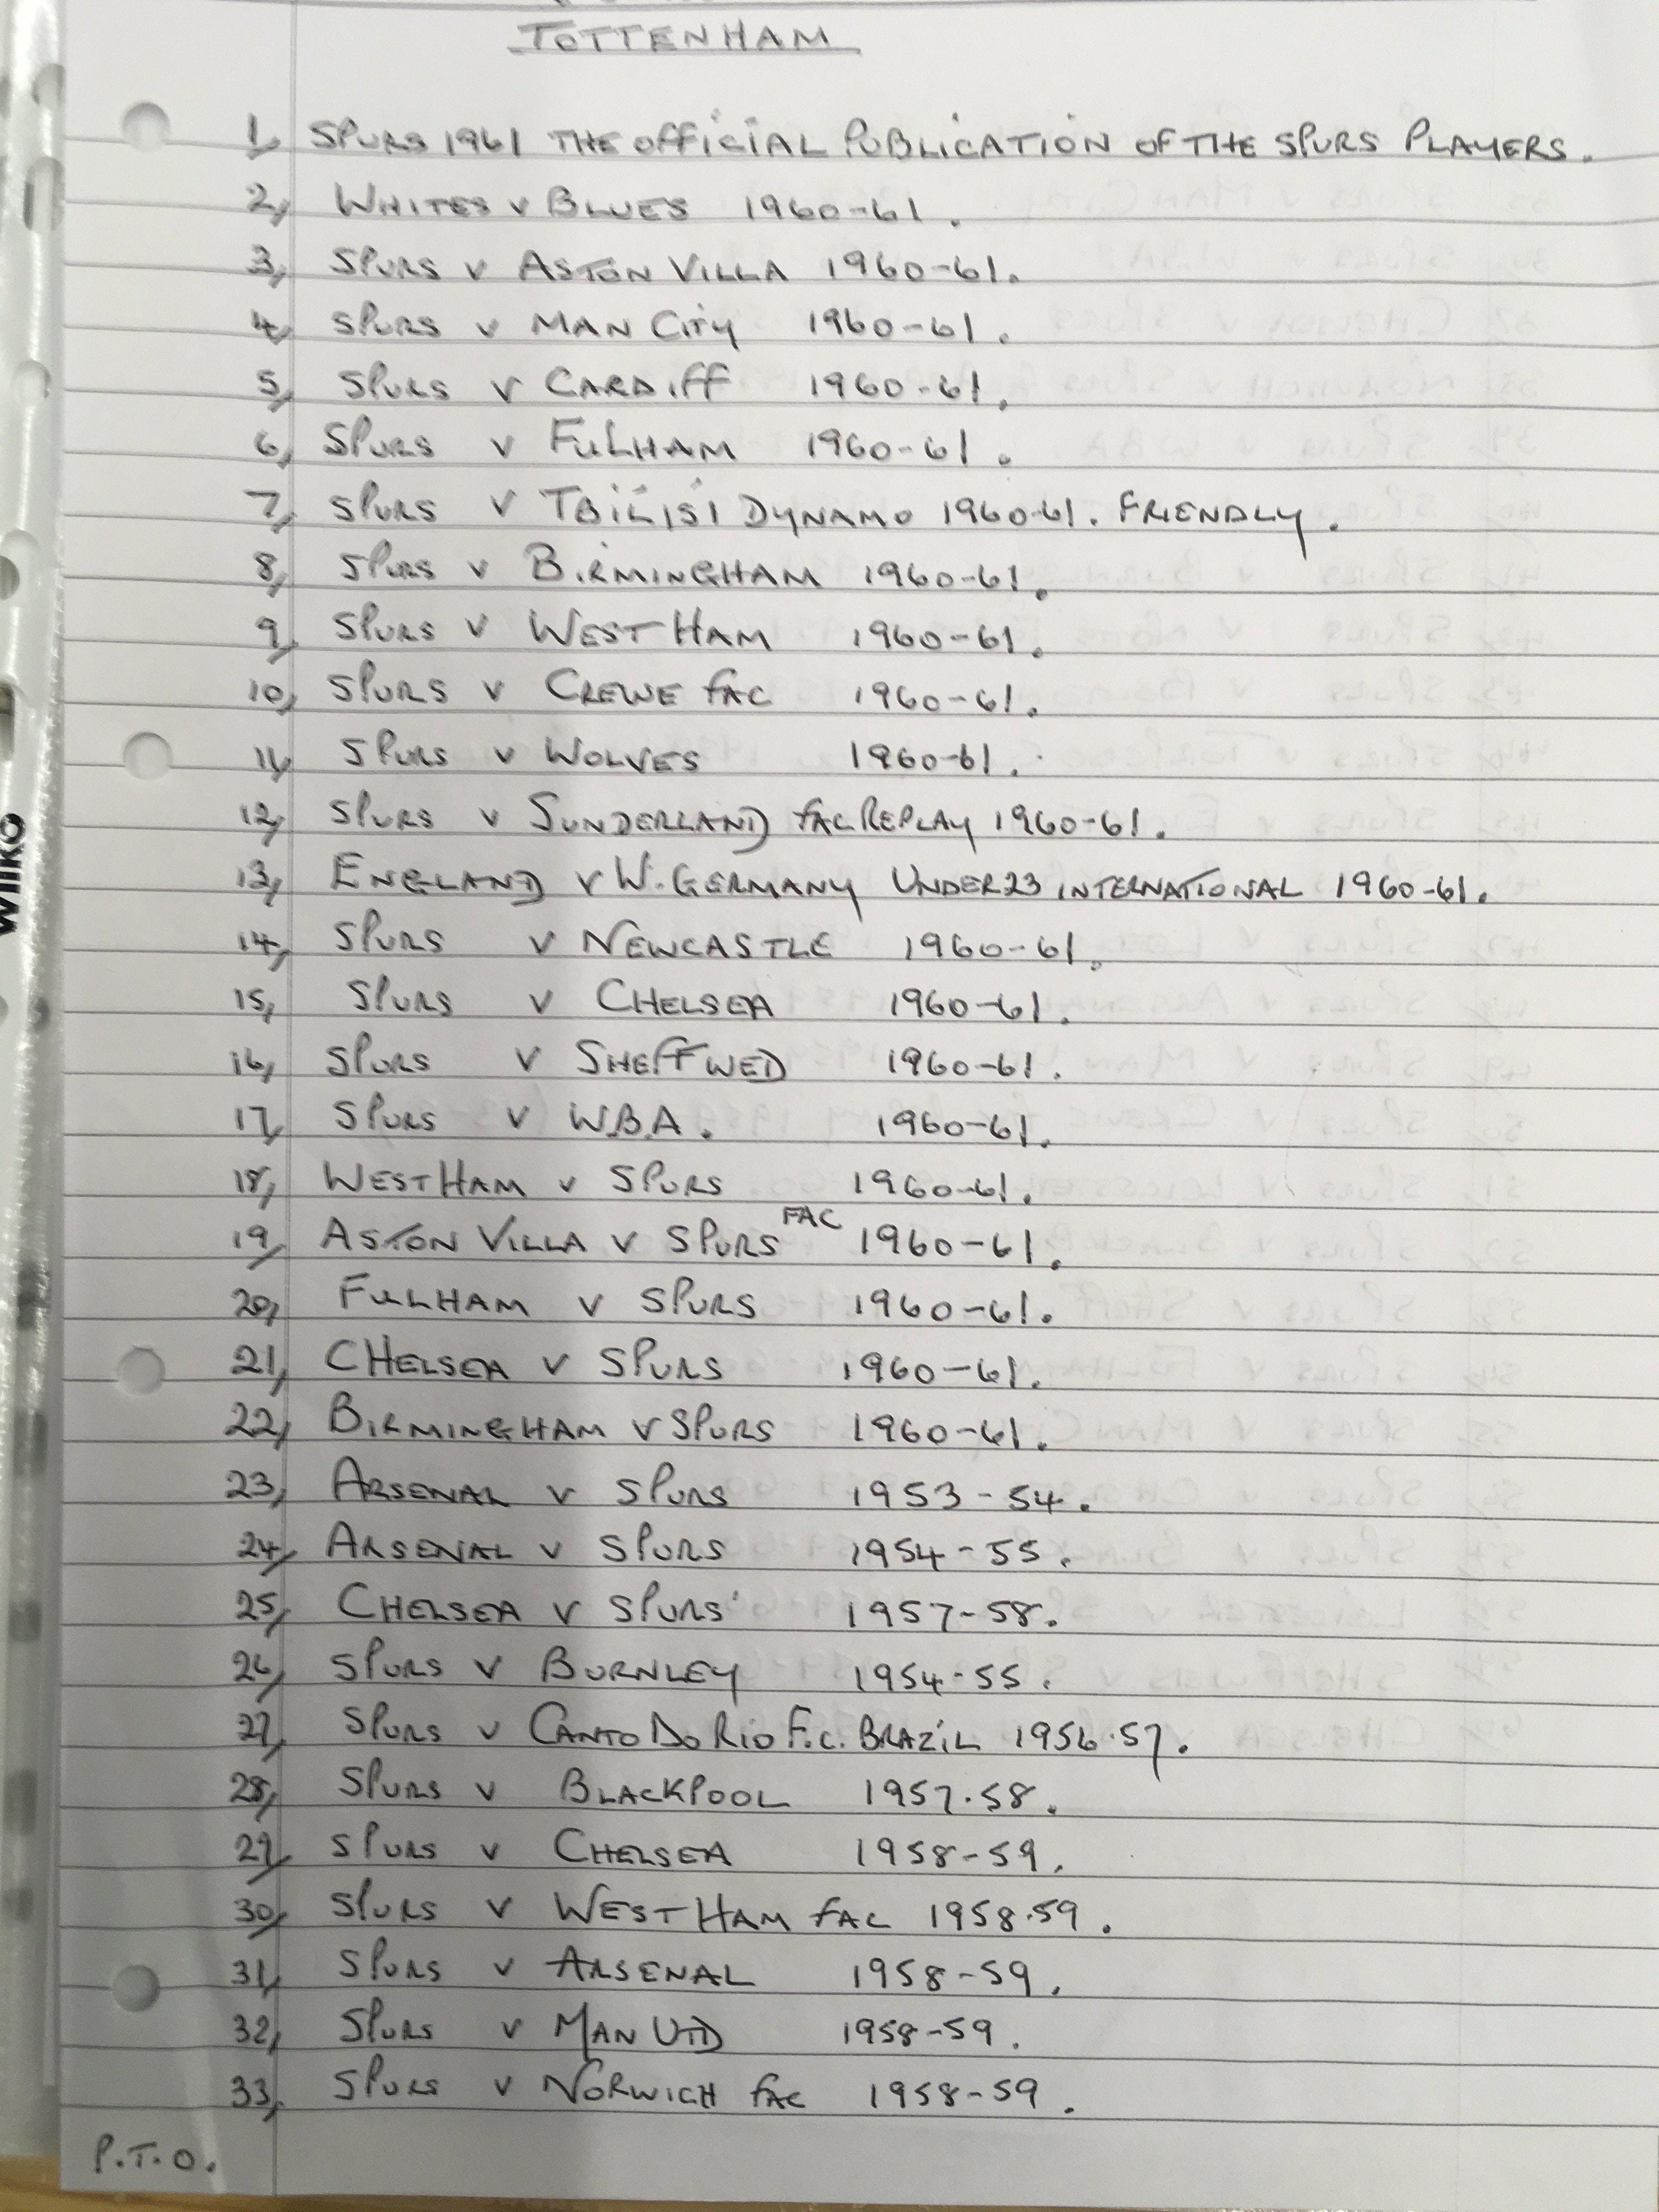 TOTTENHAM
1, SPURS 1961 THE OFFICIAL PUBLICATION OF THE SPURS PLAYERS.
2, WHITES V BLUES 1960-61.
3, SPURS V ASTON VILLA 1960-61.
4, SPURS V MAN CITY 1960-61.
5, SPURS V CARDIFF 1960-61.
6, SPURS V FULHAM 1960-61.
7, SPURS V TBILISI DYNAMO 1960-61. FRIENDLY.
8, SPURS V BIRMINGHAM 1960-61.
9, SPURS V WEST HAM 1960-61.
10, SPURS V CREWE FAC 1960-61.
11, SPURS V WOLVES 1960-61.
12, SPURS V SUNDERLAND FAC REPLAY 1960-61.
13, ENGLAND V W. GERMANY UNDER 23 INTERNATIONAL 1960-61.
14, SPURS V NEWCASTLE 1960-61.
15, SPURS V CHELSEA 1960-61.
16, SPURS V SHEFF WED 1960-61.
17, SPURS V W.B.A. 1960-61.
18, WEST HAM V SPURS 1960-61.
19, ASTON VILLA V SPURS FAC 1960-61.
20, FULHAM V SPURS 1960-61.
21, CHELSEA V SPURS 1960-61.
22, BIRMINGHAM V SPURS 1960-61.
23, ARSENAL V SPURS 1953-54.
24, ARSENAL V SPURS 1954-55.
25, CHELSEA V SPURS 1957-58.
26, SPURS V BURNLEY 1954-55.
27, SPURS V CANTO DO RIO F.C. BRAZIL 1956-57.
28, SPURS V BLACKPOOL 1957-58.
29, SPURS V CHELSEA 1958-59.
30, SPURS V WEST HAM FAC 1958-59.
31, SPURS V ARSENAL 1958-59.
32, SPURS V MAN UTD 1958-59.
33, SPURS V NORWICH FAC 1958-59.
P.T.O.
wilko